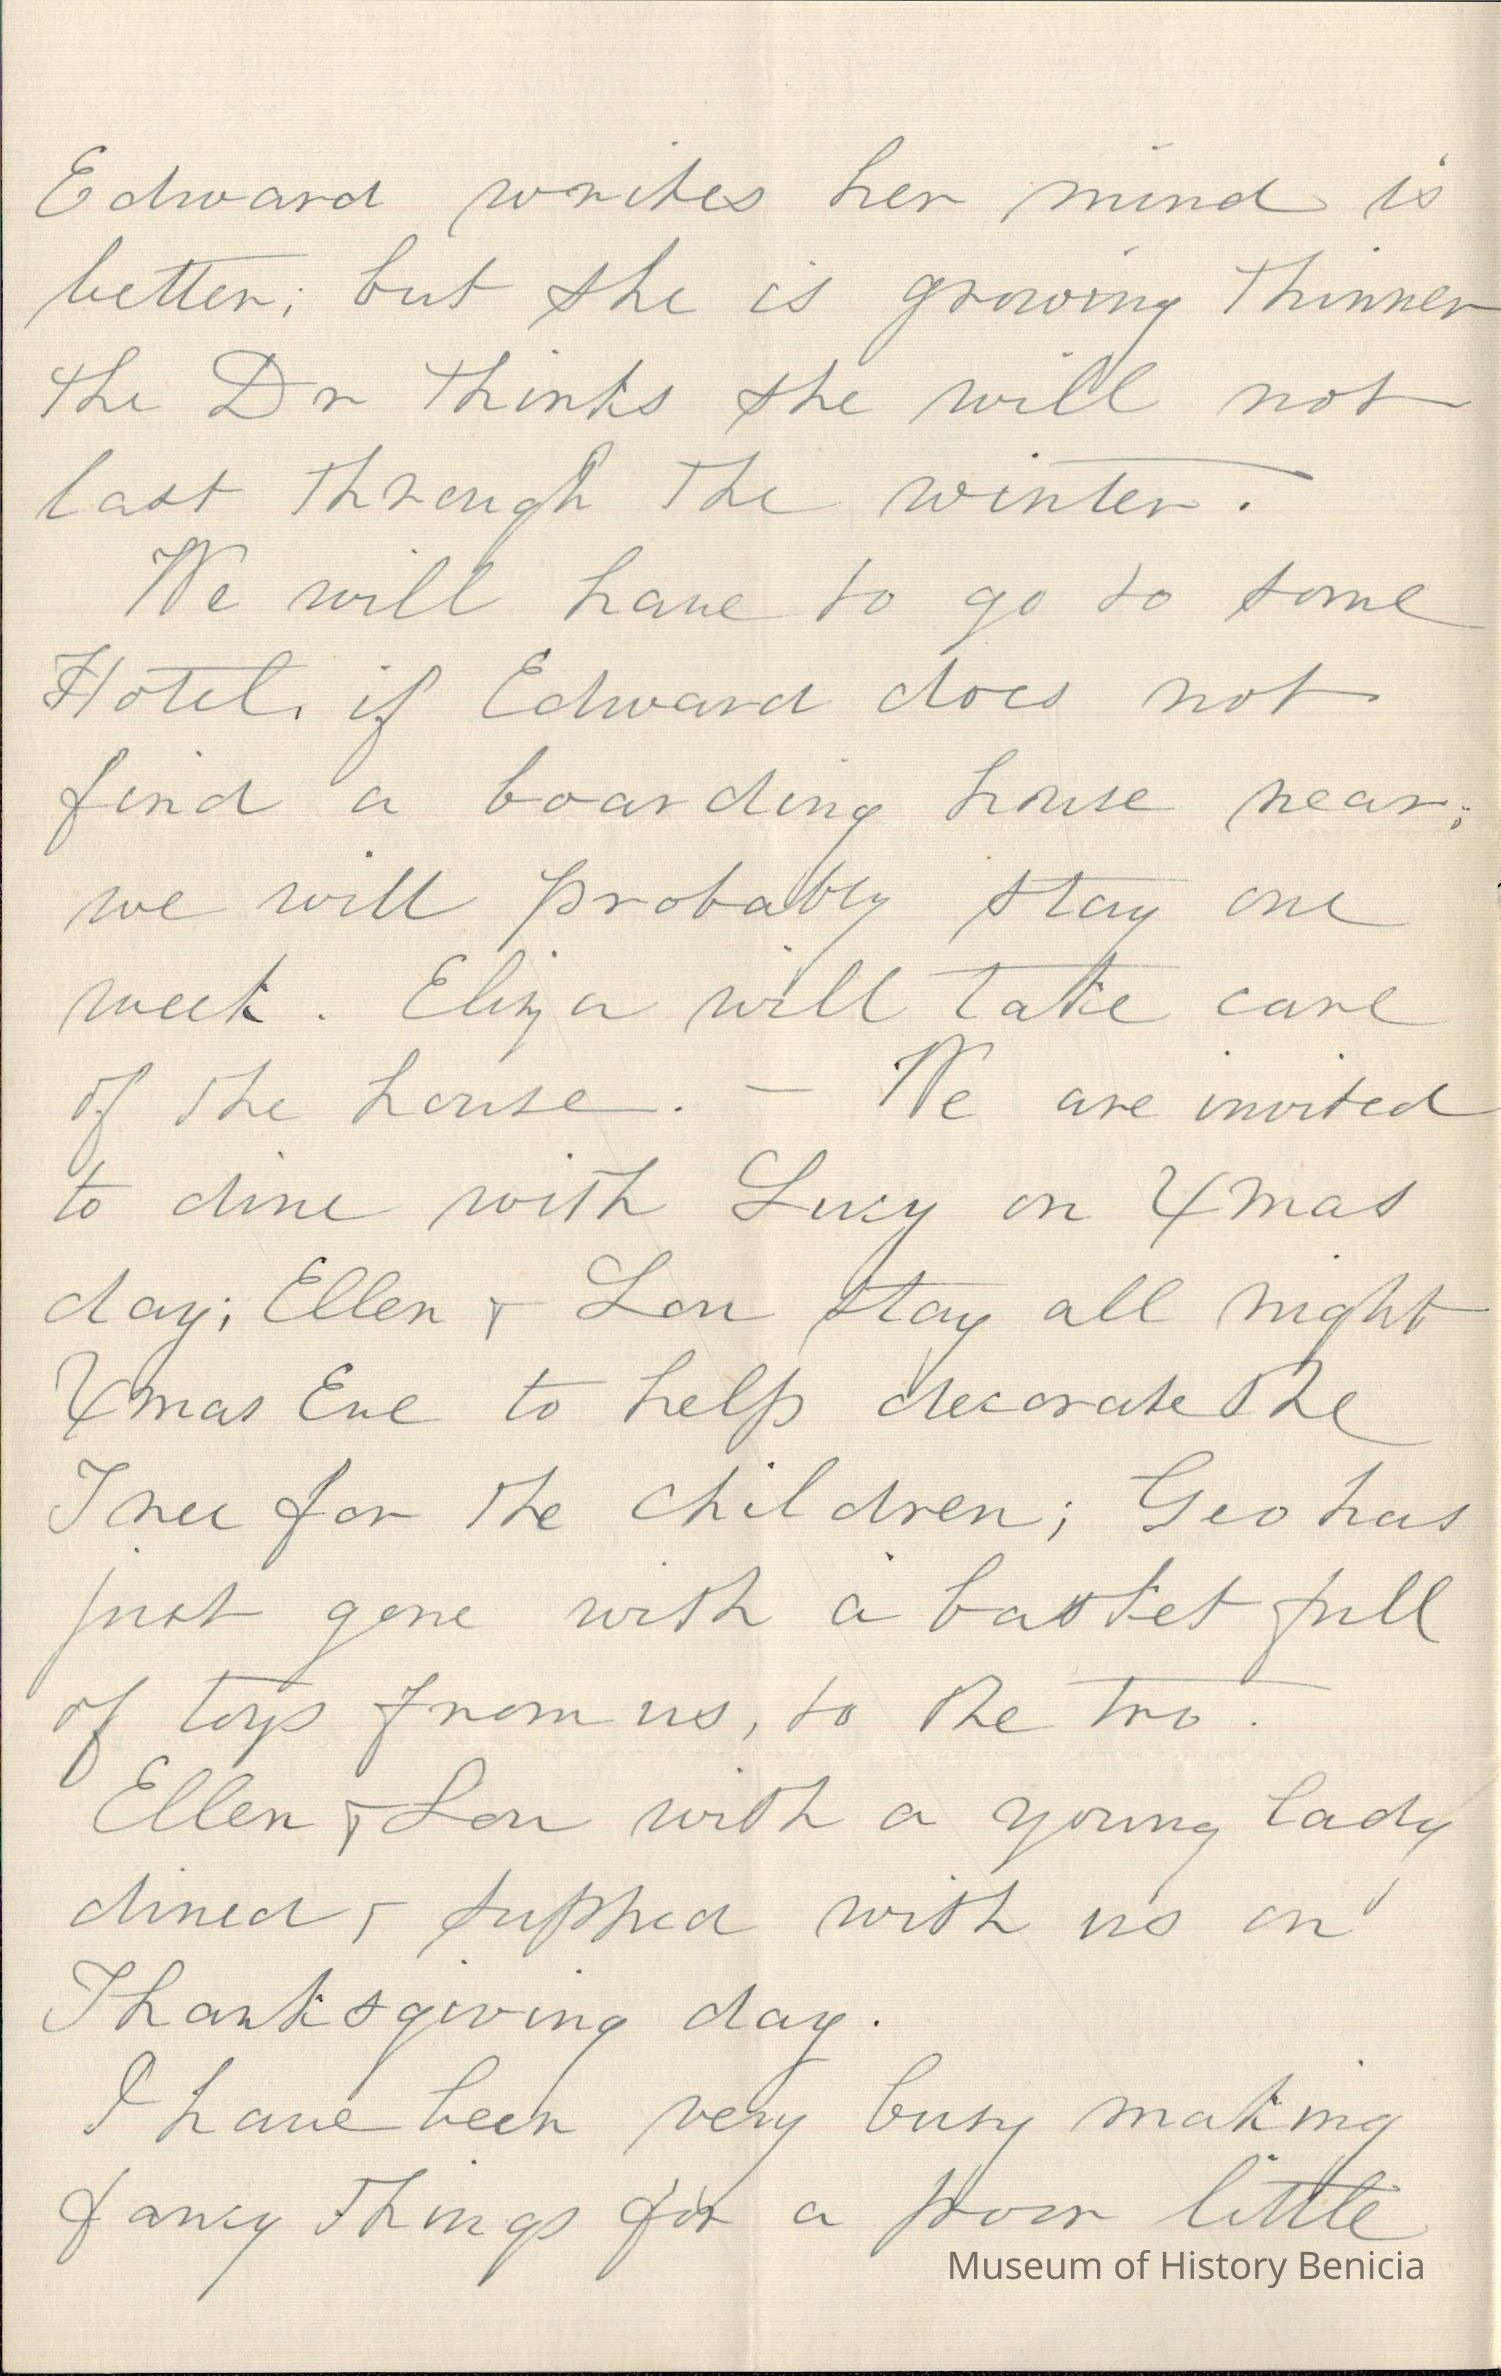 Edward writes her mind is
better; but she is growing thinner
the Dr thinks she will not
last through the winter.
We will have to go to some
Hotel, if Edward does not
find a boarding house near;
we will probably stay one
week. Eliza will take care
of the house. — We are invited
to dine with Lucy on Xmas
day; Ellen & Lou stay all night
Xmas Eve to help decorate the
Tree for the children; Geo has
just gone with a basket full
of toys from us, to the two.
Ellen & Lou with a young lady
dined & supped with us on
Thanksgiving day.
I have been very busy making
fancy things for a poor little
Museum of History Benicia